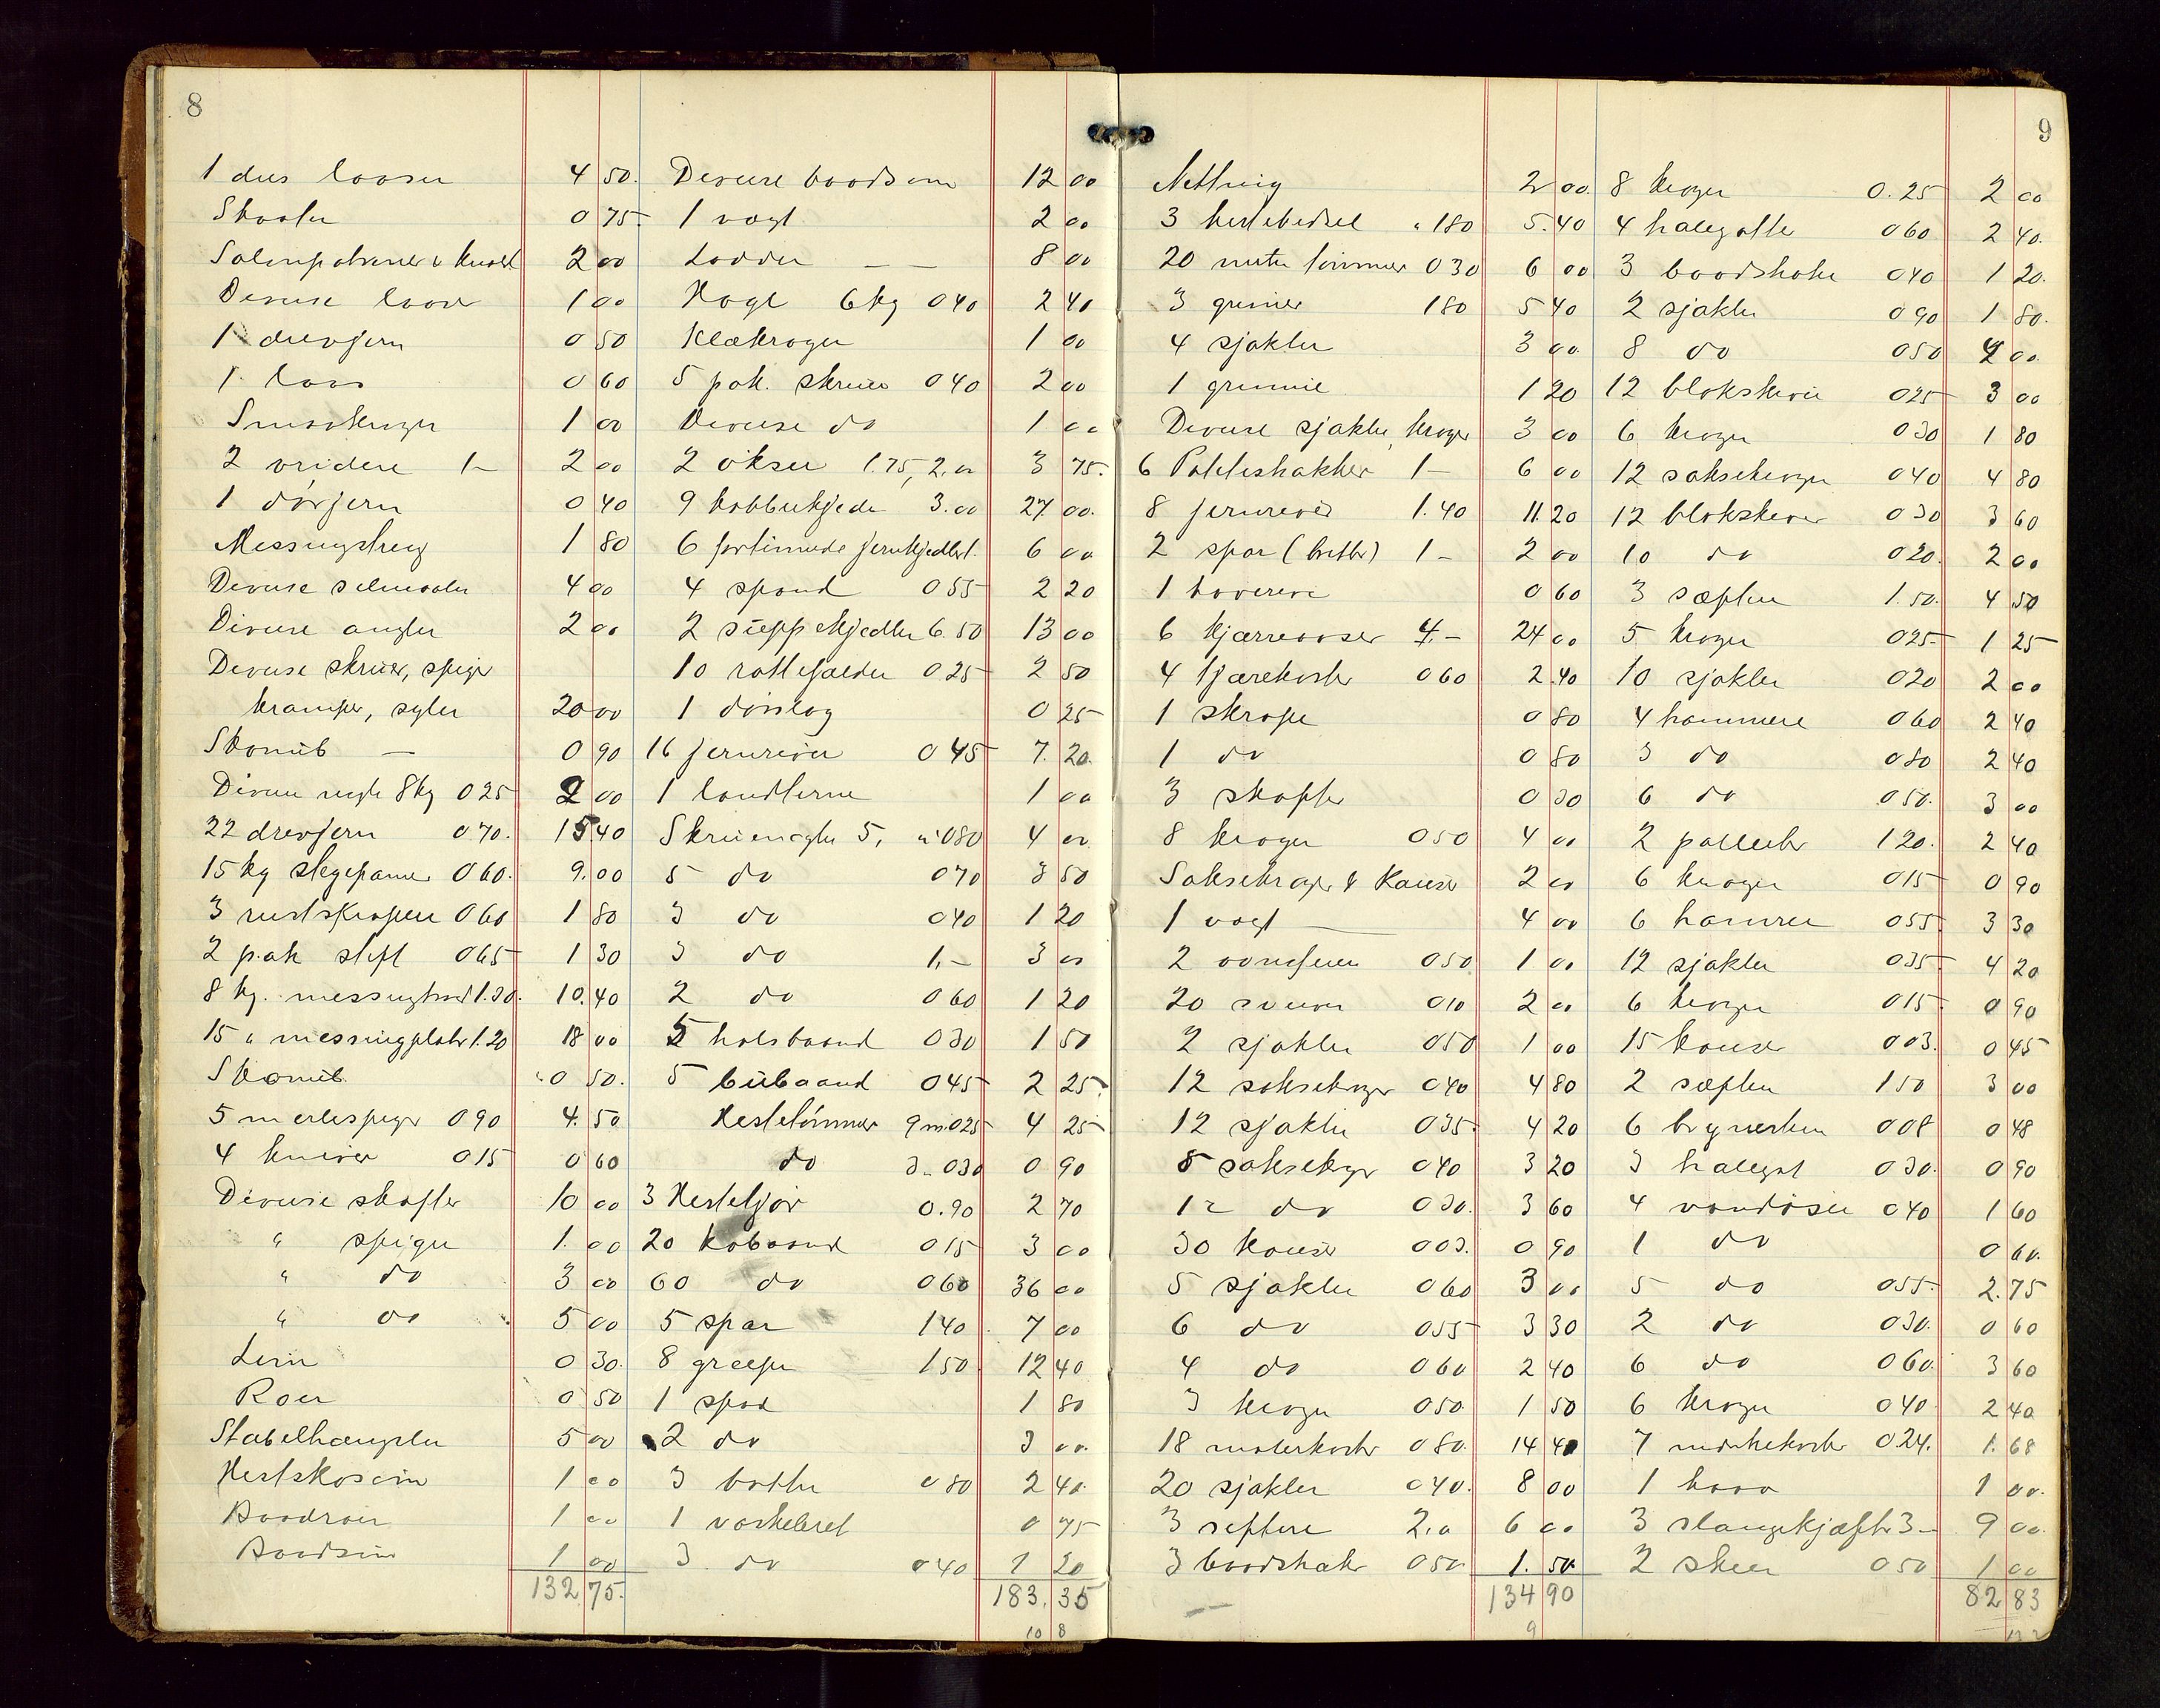 8
1 dus laaser 4 50.
Skaaler 0 75
2 00
Diverse laaser 1 00
1 drevjern 0 50
1 laas 0 60
1 00
2 vridere 1- 2 00
1 dörjern 0 40
Messingstreng 1 80
Diverse 4 00
Diverse angler 2 00
Diverse skruer, spiger
kramper, syler 20 00
Skomüb — 0 90
Diverse negle 8 kg 0 25 2 00
22 drevjern 0.70. 15.40
15 kg stegepanner 0 60. 9.00
3 rustskraper 0 60 1 80
2 pak stift 0 65 1 30
8 kg. messingtraad 1.30. 10.40
15 " messingplater 1.20 18 00
Skomüb 0 50.
5 merlespiger 0 90 4.50
4 kniver 0 15 0 60
Diverse skafter 10 00
" spiger 1.00
" do 3 00
" do 5 00
Leim 0 30.
Roer 0 50
Stabelhængsler 5 00
Hestskosöm 1 00
Baadroer 1 00
Baadsöm 1 00
132 75.
Diverse baadsöm 12 00
1 vægt 2 00
Lodder — — 8 00
Hagl 6 kg 0 40 2 40
Klækroger 1 00
5 pak. skruer 0 40 2 00
Diverse do 1 00
2 økser 1.75, 2.00 3 75.
9 kobberkjedler 3.00 27 00.
6 fortinnede jernkjedler 1. 6 00
4 spand 0 55 2 20
2 süppekjedler 6.50 13 00
10 rottefælder 0 25 2 50
1 dörslag 0 25
16 jernriver 0 45 7.20.
1 landterne 1 00
Skruenøgler 5, a 0 80 4 00
5 do 0 70 3 50
3 do 0 40 1 20
3 do 1,- 3 00
2 do 0 60 1 20
5 halsbaand 0 30 1 50
5 bübaand 0 45 2 25.
Hestetömmer 9 m. 0 25 4 25
do 3 " 0 30 0 90
3 Hestetjor 0.90 2 70
20 kobaand 0 15 3 00
60 do 0 60 36 00
5 spar 1 40. 7 00
8 greiper 1 50 12 40
1 spad 1 80
2 do 3 00.
3 bøtter 0 80 2 40.
1 vaskebret 0 75
3 do 0 40 1 20
183.35
10 8
9
Netting 2 00.
3 hestebedsel " 1 80 5.40
20 meter tömmer 0 30 6 00
3 grimer 1 80 5 40
4 sjakler 3 00.
1 grimme 1 20
Diverse sjakler, kroger 3 00
6 Pottishakker 1- 6 00
8 jernriver 1.40 11.20
2 spar (brette) 1- 2 00
1 haverive 0 60
6 kjærreaaser 4.- 24 00
4 tjærekoster 0 60 2.40
1 skrape 0 80
1 do 0 80
3 skafter 0 30
8 kroger 0 50 4 00
Saksekroger & Kauser 2 00
1 vægt — 4 00
2 0 50 1 00
20 0 10 2 00
2 sjakler 0 50 1 00
12 saksekroger 0 40 4 80
12 sjakler 0 35. 4 20
8 saksekroger 0 40 3 20
12 do 0 30. 3 60
30 Kauser 0 03. 0 90
5 sjakler 0 60 3 00
6 do 0 55 3 30
4 do 0 60 2 40
3 kroger 0 50 1 50
18 malerkoster 0 80. 14 40
20 sjakler 0 40. 8 00
3 septere 2,0 6 00
3 baadshaker 0 50 1.50
134 90
9
8 kroger 0.25 2 00
4 halegatter 0 60 2 40.
3 baadshaker 0 40 1 20.
2 sjakler 0 90 1 80.
8 do 0 50 4 00.
12 blokskiver 0 25 3 00
6 kroger 0 30 1 80
12 saksekroger 0 40 4 80
12 blokskiver 0 30 3 60
10 do 0 20. 2 00
3 sæpter 1.50. 4 50
5 kroger 0 25 1 25
10 sjakler 0 20 2 00
4 hammere 0 60 2 40
3 do 0 80 2 40
6 do 0 50. 3 00
2 1 20. 2 40
6 kroger 0 15 0 90
6 hamrer 0 55. 3 30
12 sjakler 0 35 4 20
6 kroger 0 15. 0 90
15 kauser 0 03. 0 45
2 sæpter 1 50 3 00
6 brynesten 0 08 0 48
3 halegat 0 30. 0 90
4 vandöser 0 40 1 60
1 do 0 60.
5 do 0 55. 2.75
2 do 0 30. 0 60
6 do 0 60. 3 60
6 kroger 0 40 2 40
7 merkekoster 0.24. 1.68
1 haav 1 00.
3 slangekjæfter 3- 9 00.
2 skeer 0 50 1 00
82 83